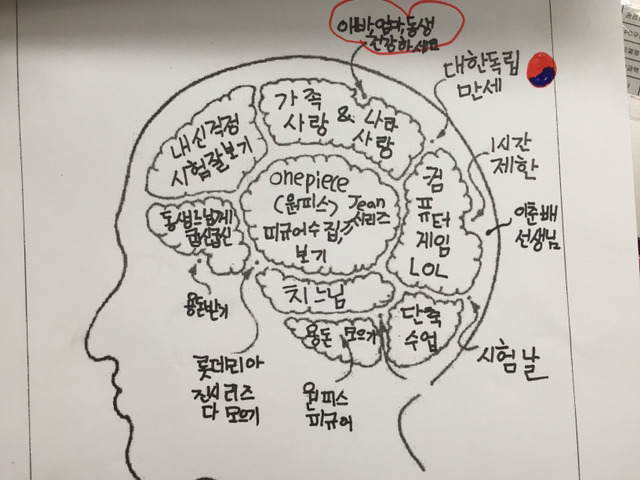 아빠,엄마,동생
건강하세요
대한독립
만세
가족
사랑
&
나라
사랑
내신걱정
시험잘보기
1시간
제한
컴
퓨터
게임
LOL
onepiece
(원피스)
피규어수집,
보기
Jean
시리즈
동생느님께
굽신굽신
이준배
선생님
용돈받기
치느님
용돈 모으기
단축
수업
시험날
롯데리아
진시리즈
다 모으기
원피스
피규어